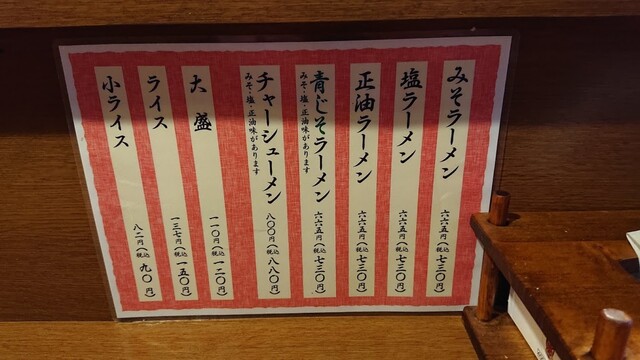 みそラーメン 六六五円(税込七三〇円)
塩ラーメン 六六五円(税込七三〇円)
正油ラーメン 六六五円(税込七三〇円)
青じそラーメン 六六五円(税込七三〇円)
みそ・塩・正油味があります
チャーシューメン 八〇〇円(税込八八〇円)
みそ・塩・正油味があります
大盛 一一〇円(税込一二〇円)
ライス 一三七円(税込一五〇円)
小ライス 八二円(税込九〇円)